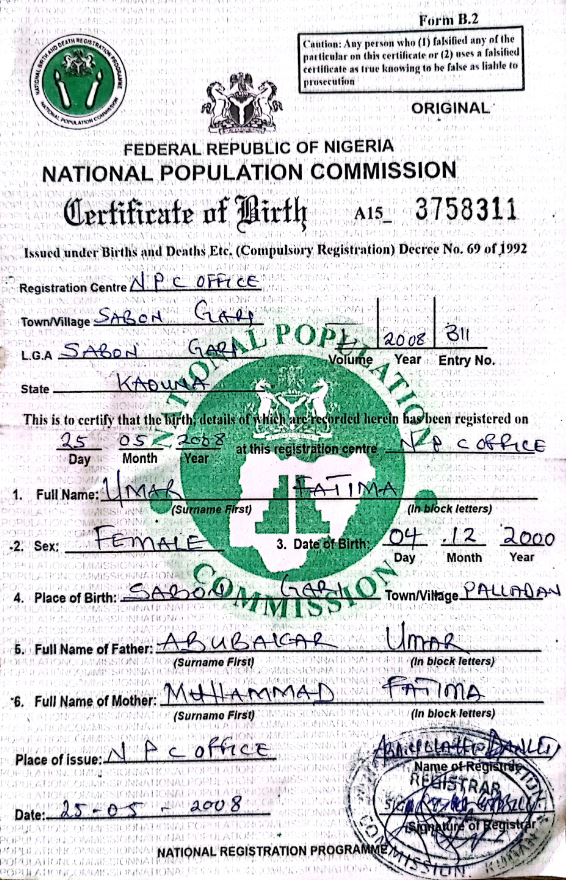 Form B.2
Caution: Any person who (1) falsified any of the
particular on this certificate or (2) uses a falsified
certificate as true knowing to be false as liable to
prosecution
NATIONAL BIRTH AND DEATH REGISTRATION PROGRAMME
NATIONAL POPULATION COMMISSION
ORIGINAL
FEDERAL REPUBLIC OF NIGERIA
NATIONAL POPULATION COMMISSION
Certificate of Birth A15_ 3758311
Issued under Births and Deaths Etc. (Compulsory Registration) Decree No. 69 of 1992
Registration Centre N P C OFFICE
Town/Village SABON GARI
L.G.A SABON GARI
2008 311
Volume Year Entry No.
State KADUNA
NATIONAL POPULATION COMMISSION
This is to certify that the birth, details of which are recorded herein has been registered on
25 05 2008 at this registration centre N P C OFFICE
Day Month Year
1. Full Name: UMAR FATIMA
(Surname First) (In block letters)
2. Sex: FEMALE 3. Date of Birth: 04 12 2000
Day Month Year
4. Place of Birth: SABON GARI Town/Village PALLADAN
5. Full Name of Father: ABUBAKAR UMAR
(Surname First) (In block letters)
6. Full Name of Mother: MUHAMMAD FATIMA
(Surname First) (In block letters)
Place of issue: N P C OFFICE
Name of Registrar
REGISTRAR
Date: 25-05-2008
Signature of Registrar
COMMISSION
NATIONAL REGISTRATION PROGRAMME